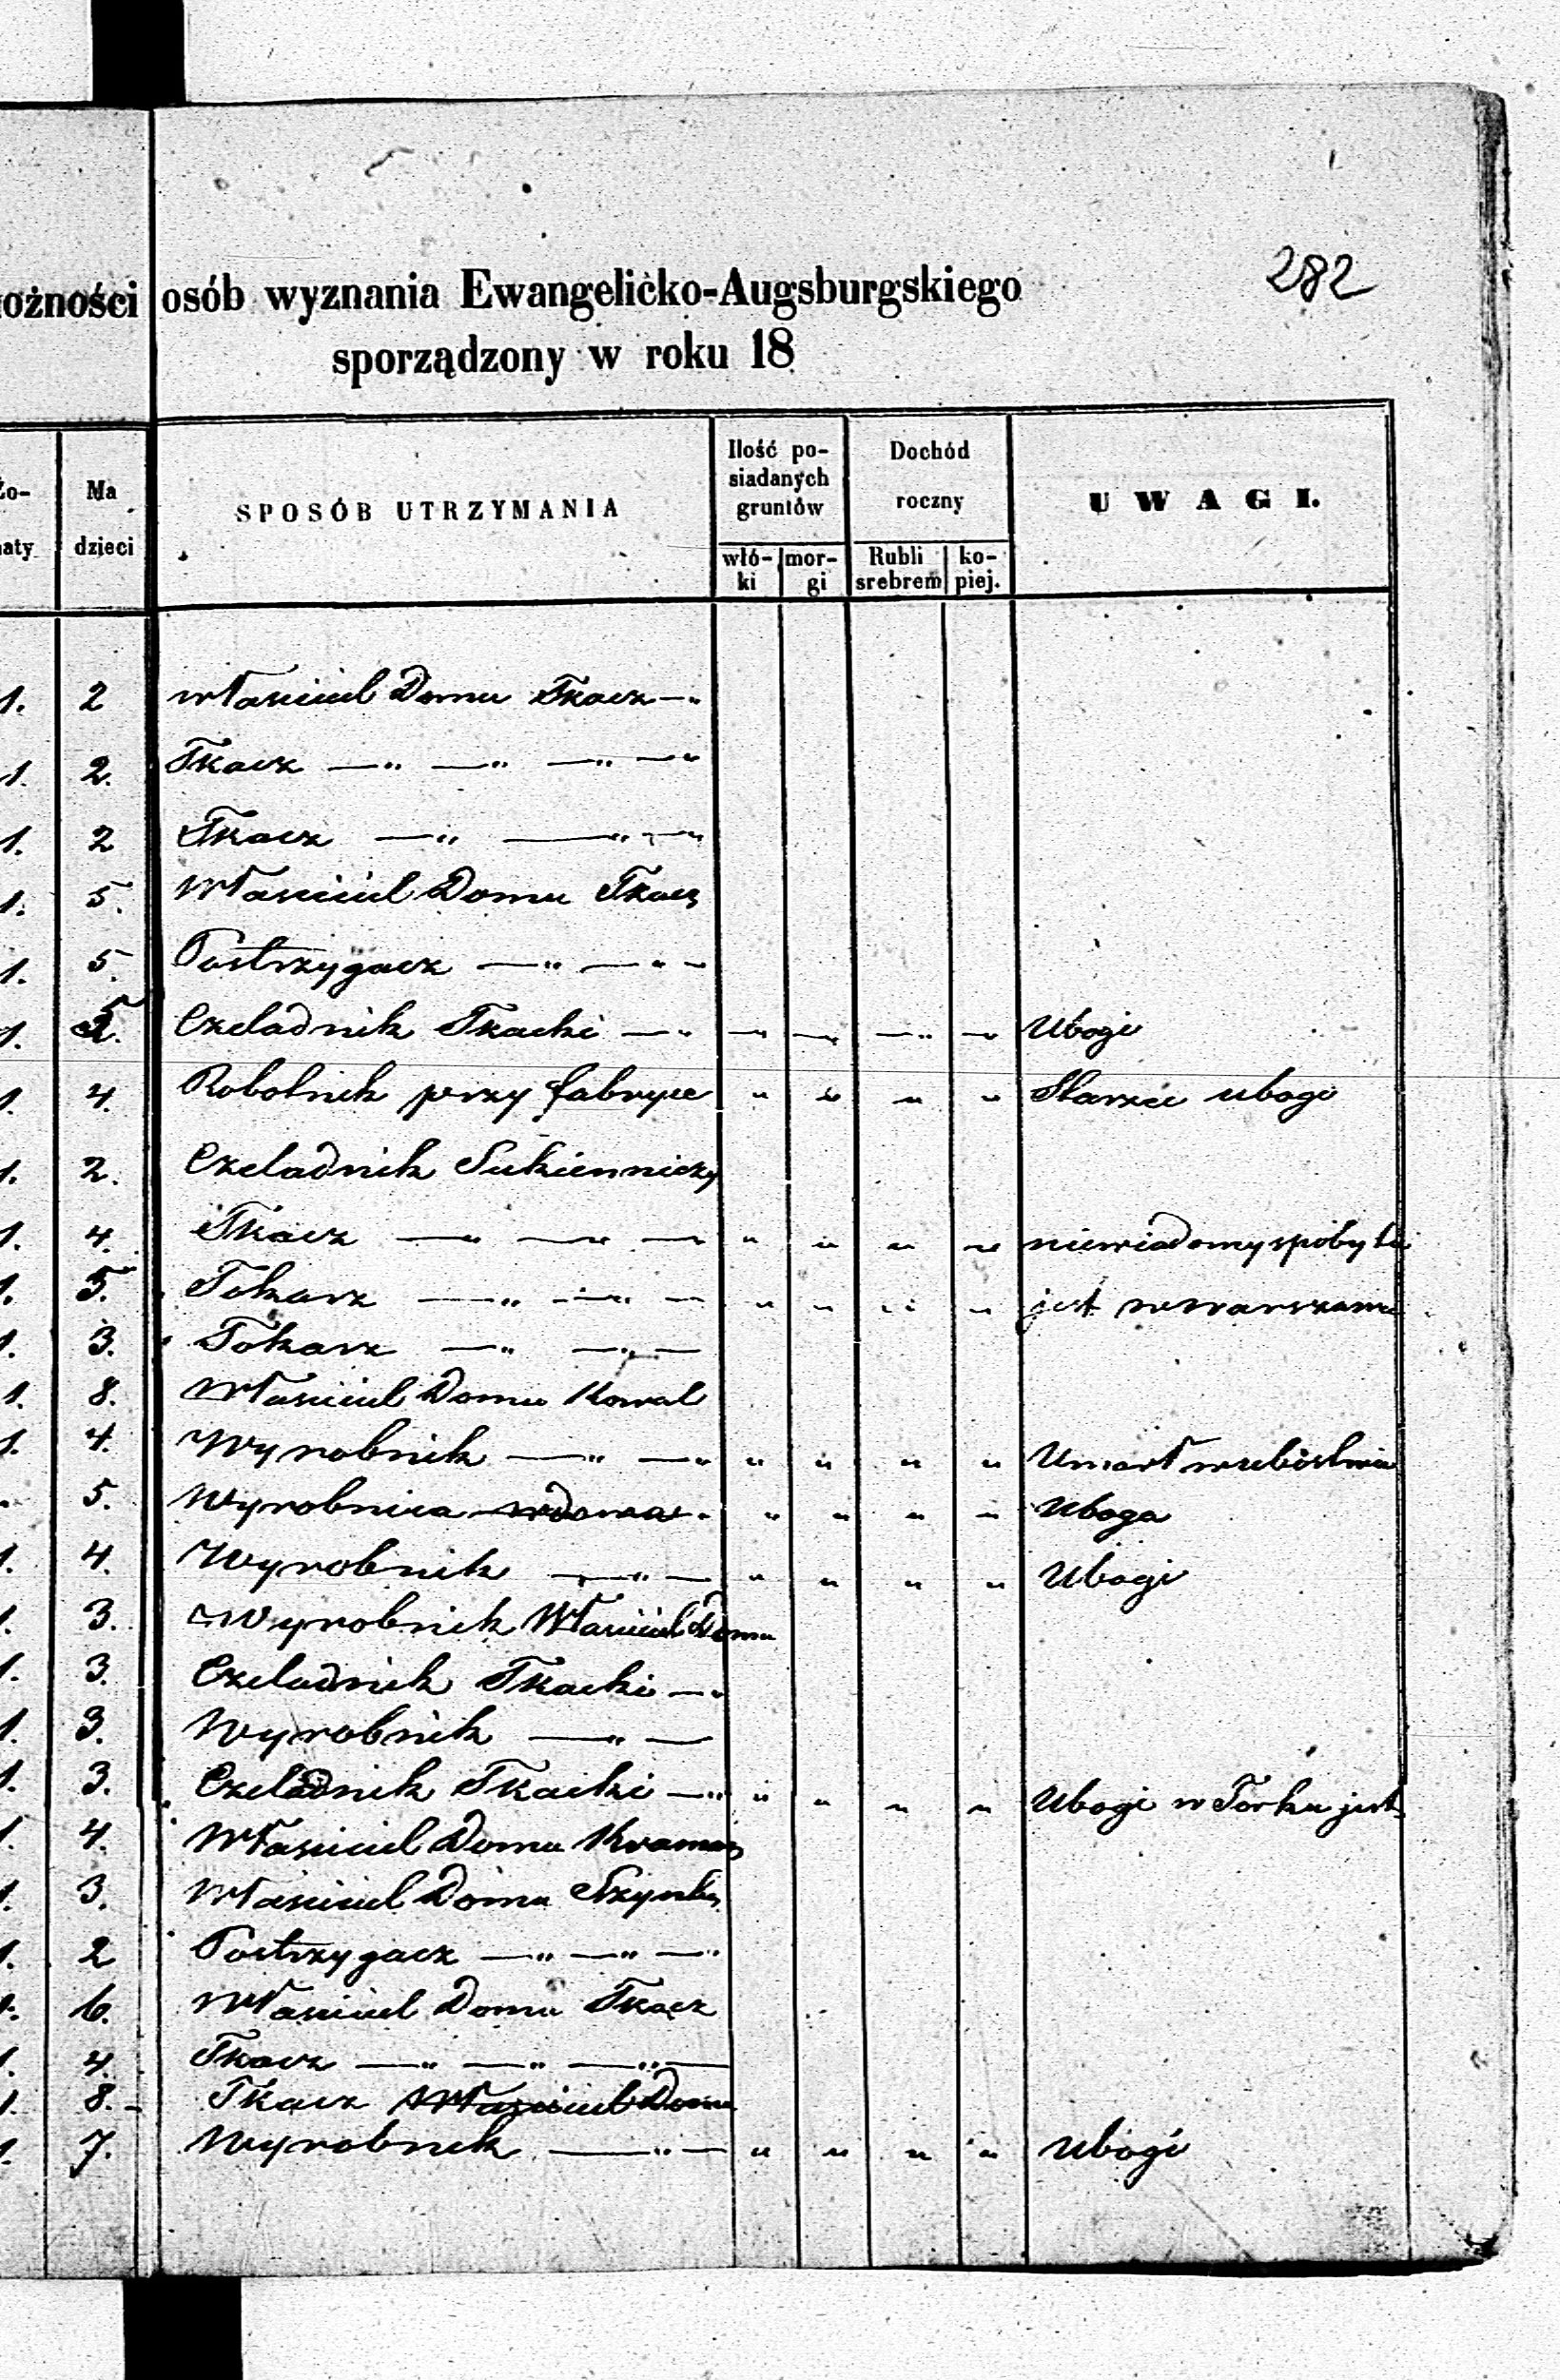 282
ożności osób wyznania Ewangelicko-Augsburgskiego
sporządzony w roku 18
Żo- Ma SPOSÓB UTRZYMANIA Ilość po- Dochód UWAGI.
siadanych roczny
gruntów
naty dzieci włó- mor- Rubli ko-
ki gi srebrem piej.
1. 2 właściciel Domu Tkacz —"
1. 2. Tkacz —" —" —" —"
1. 2 Tkacz —" —" —"
1. 5. Właściciel Domu Tkacz
1. 5. Postrzygacz —" —" –
1. Czeladnik Tkacki —" —" —" —" —" Ubogi
1. 4. Robotnik przy fabryce " " " " Starzec ubogi
1. 2. Czeladnik Sukienniczy
1. 4. Tkacz —" —" —" " " " " niewiadomy spobytu
1. 5. Tokarz —" —" — " " " " jest w Warszawie
1. 3. Tokarz —" —" —
1. 8. Właściciel Domu Kowal
1. 4. Wyrobnik —" —" " " " " Umarł w ubóstwie
5. Wyrobnica wdowa " " " " Uboga
1. 4. Wyrobnik —" — " " " " Ubogi
1. 3. Wyrobnik Właściciel Domu
1. 3. Czeladnik Tkacki —"
1. 3. Wyrobnik —" —
1. 3. Czeladnik Tkacki —" " " " " Ubogi w jest
1. 4. Właściciel Domu Kramarz
1. 3. Właściciel Domu
1. 2 Postrzygacz —" —" —"
1. 6. Właściciel Domu Tkacz
1. 4. Tkacz —" —" —" —
1. 8. – Tkacz Właściciel Domu
1. 7. Wyrobnik —" — " " " " Ubogi